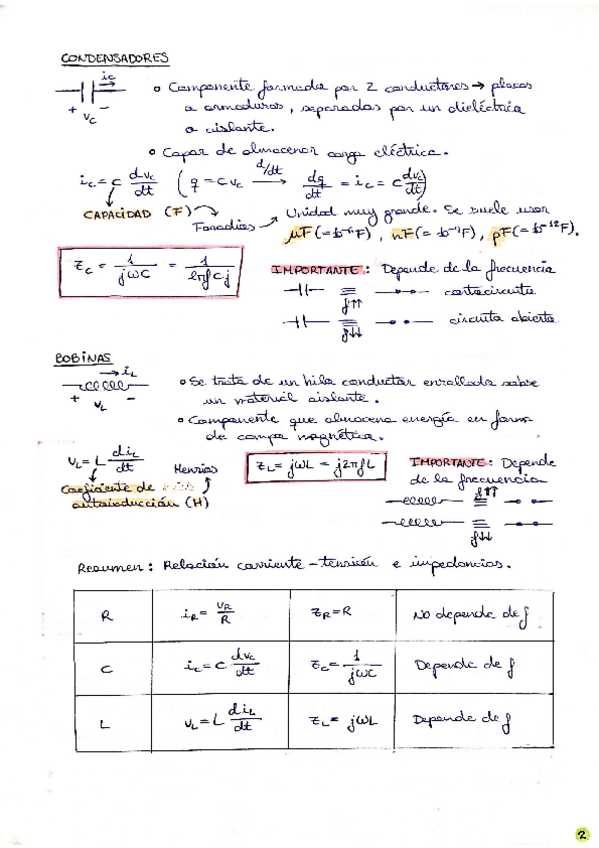 CONDENSADORES
ic
+ Vc -
o Componente formado por 2 conductores → placas
o armaduras, separadas por un dieléctrico
o aislante.
o Capaz de almacenar carga eléctrica.
ic = C dvc/dt ( q = C vc d/dt → dq/dt = ic = C dvc/dt )
CAPACIDAD (F) Faradios Unidad muy grande. Se suele usar
μF (= 10⁻⁶F), nF (= 10⁻⁹F), pF (= 10⁻¹²F).
Zc = 1/jωC = 1/2πfCj
IMPORTANTE: Depende de la frecuencia
f↑↑ cortocircuito
f↓↓ circuito abierto
BOBINAS
→ iL
+ VL -
o Se trata de un hilo conductor enrollado sobre
un material aislante.
o Componente que almacena energía en forma
de campo magnético.
VL = L diL/dt Henrios
Coeficiente de
autoinducción (H)
ZL = jωL = j2πfL
IMPORTANTE: Depende
de la frecuencia
f↑↑
f↓↓
Resumen: Relación corriente-tensión e impedancias.
R iR = VR/R ZR = R No depende de f
C ic = C dvc/dt Zc = 1/jωC Depende de f
L VL = L diL/dt ZL = jωL Depende de f
2